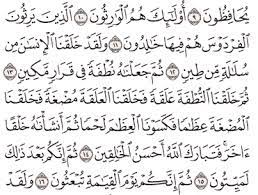 يُحَافِظُونَ ۝٩ أُوْلَـٰٓئِكَ هُمُ ٱلْوَٰرِثُونَ ۝١٠ ٱلَّذِينَ يَرِثُونَ
ٱلْفِرْدَوْسَ هُمْ فِيهَا خَـٰلِدُونَ ۝١١ وَلَقَدْ خَلَقْنَا ٱلْإِنسَـٰنَ مِن
سُلَـٰلَةٍ مِّن طِينٍ ۝١٢ ثُمَّ جَعَلْنَـٰهُ نُطْفَةً فِى قَرَارٍ مَّكِينٍ ۝١٣
ثُمَّ خَلَقْنَا ٱلنُّطْفَةَ عَلَقَةً فَخَلَقْنَا ٱلْعَلَقَةَ مُضْغَةً فَخَلَقْنَا
ٱلْمُضْغَةَ عِظَـٰمًا فَكَسَوْنَا ٱلْعِظَـٰمَ لَحْمًا ثُمَّ أَنشَأْنَـٰهُ خَلْقًا
ءَاخَرَ فَتَبَارَكَ ٱللَّهُ أَحْسَنُ ٱلْخَـٰلِقِينَ ۝١٤ ثُمَّ إِنَّكُم بَعْدَ ذَٰلِكَ
لَمَيِّتُونَ ۝١٥ ثُمَّ إِنَّكُمْ يَوْمَ ٱلْقِيَـٰمَةِ تُبْعَثُونَ ۝١٦ وَلَقَدْ